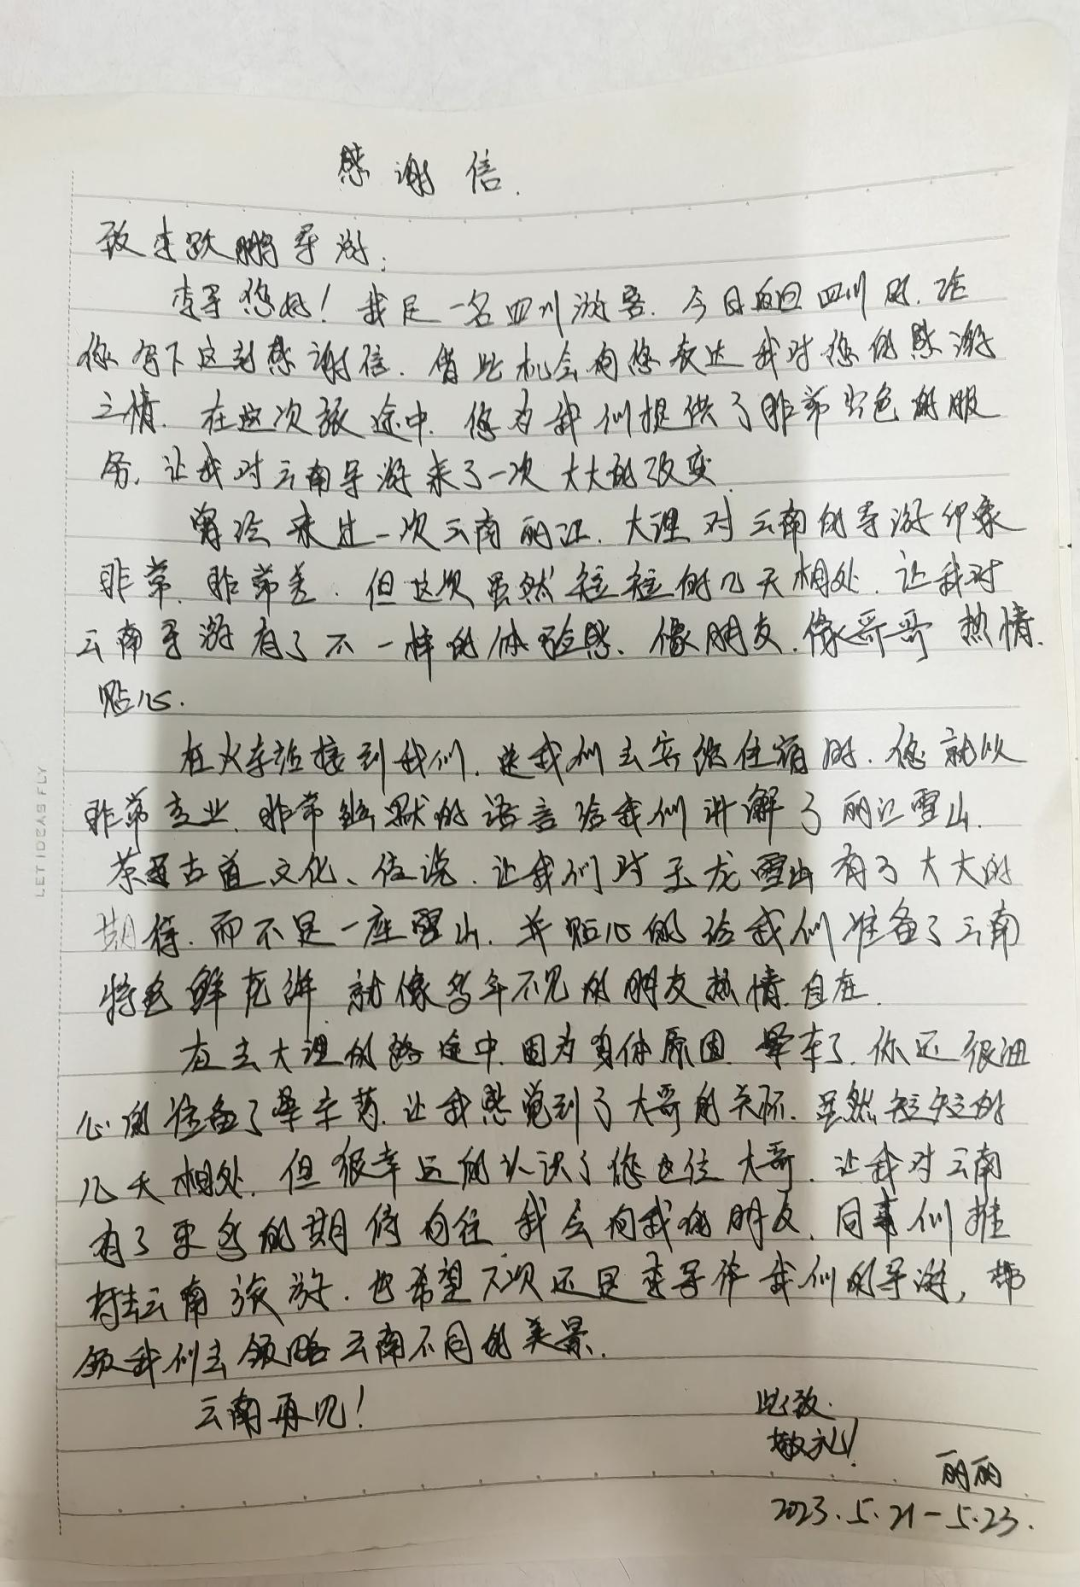 感谢信.
致李跃鹏导游:
李导您好！我是一名四川游客.今日返回四川时.给
你写下这封感谢信.借此机会向您表达我对您的感谢
之情.在这次旅途中.您为我们提供了非常出色的服
务,让我对云南导游来了一次大大的改变.
曾经来过一次云南丽江.大理对云南的导游印象
非常、非常差.但这次虽然短短的几天相处.让我对
云南导游有了不一样的体验感、像朋友.像哥哥 热情.
贴心.
在火车站接到我们.送我们去宾馆住宿时.您就以
非常专业、非常幽默的语言给我们讲解了丽江雪山.
茶马古道文化、传说.让我们对玉龙雪山有了大大的
期待.而不是一座雪山.并贴心的给我们准备了云南
特色鲜花饼 就像多年不见的朋友热情.自在.
在去大理的路途中.因为身体原因.晕车了.你还很细
心的准备了晕车药.让我感觉到了大哥的关怀.虽然短短的
几天相处.但很幸运的认识了您这位大哥.让我对云南
有了更多的期待向往 我会向我的朋友.同事们推
荐去云南旅游.也希望下次还是李导作我们的导游,带
领我们去领略云南不同的美景.
云南再见！
此致.
敬礼！
丽丽
2023.5.21-5.23.
LET IDEAS FLY